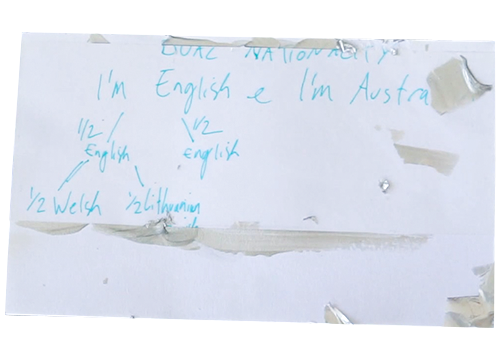 DUAL NATIONALITY
I'm English e I'm Austra
1/2 1/2
English English
1/2 Welsh 1/2 Lithuanian